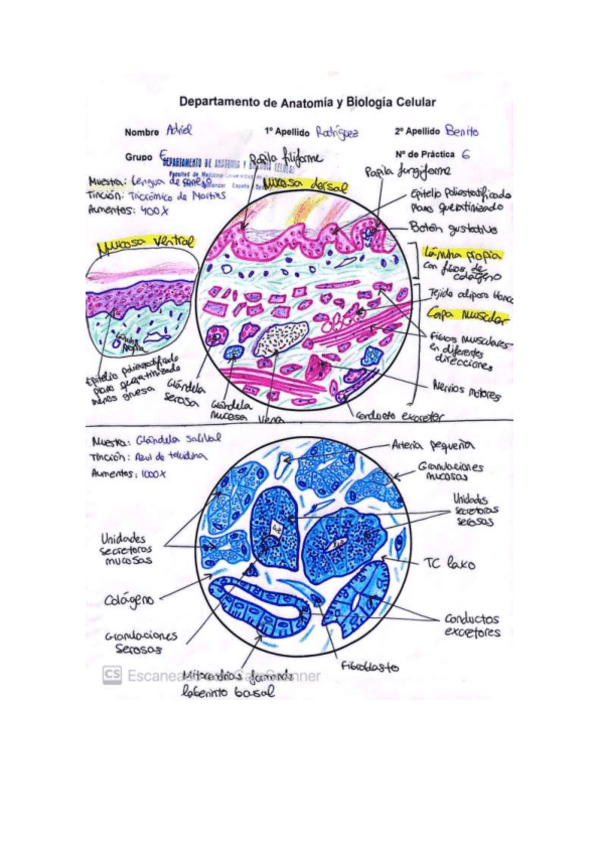 Departamento de Anatomía y Biología Celular
Nombre Adriel 1º Apellido Rodríguez 2º Apellido Benito
Grupo E Nº de Práctica 6
DEPARTAMENTO DE ANATOMIA Y BIOLOGIA CELULAR
Facultad de Medicina
Muestra: Lengua de conejo
Tinción: Tricrómico de
Aumentos: 400X
Papila filiforme
Mucosa dorsal
Papila fungiforme
Epitelio poliestratificado
plano queratinizado
Botón gustativo
Lámina propia
con fibras de
colágeno
Tejido adiposo blanco
Capa muscular
Fibras musculares
en diferentes
direcciones
Nervios motores
Conducto excretor
Vena
Glándula
mucosa
Glándula
serosa
Mucosa ventral
Lámina
propia
Epitelio poliestratificado
plano queratinizado
menos gruesa
Muestra: Glándula salival
Tinción: Azul de toluidina
Aumentos: 1000X
Arteria pequeña
Granulaciones
mucosas
Unidades
secretoras
serosas
TC laxo
Conductos
excretores
Fibroblasto
Mitocondrias formando
laberinto basal
Granulaciones
serosas
Colágeno
Unidades
secretoras
mucosas
CS Escaneado con CamScanner